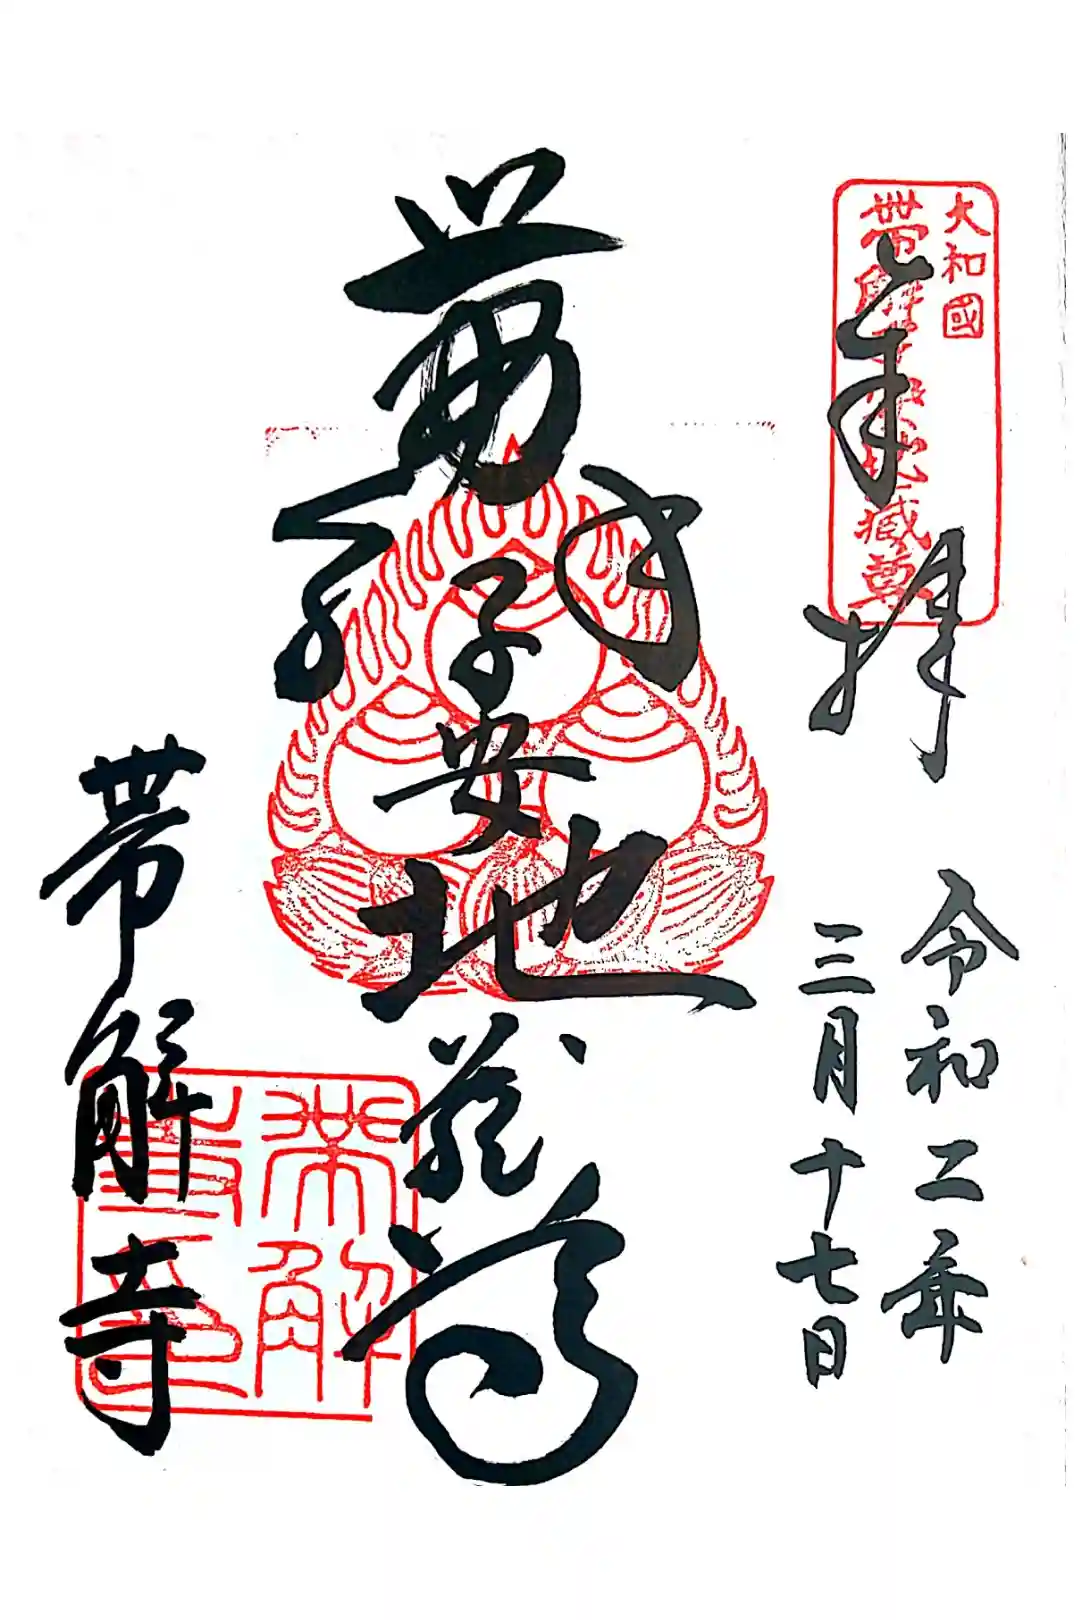 大和國
帯解子安地蔵尊
奉拝
令和二年
三月十七日
帯解子安地蔵尊
帯解寺
帯解寺印